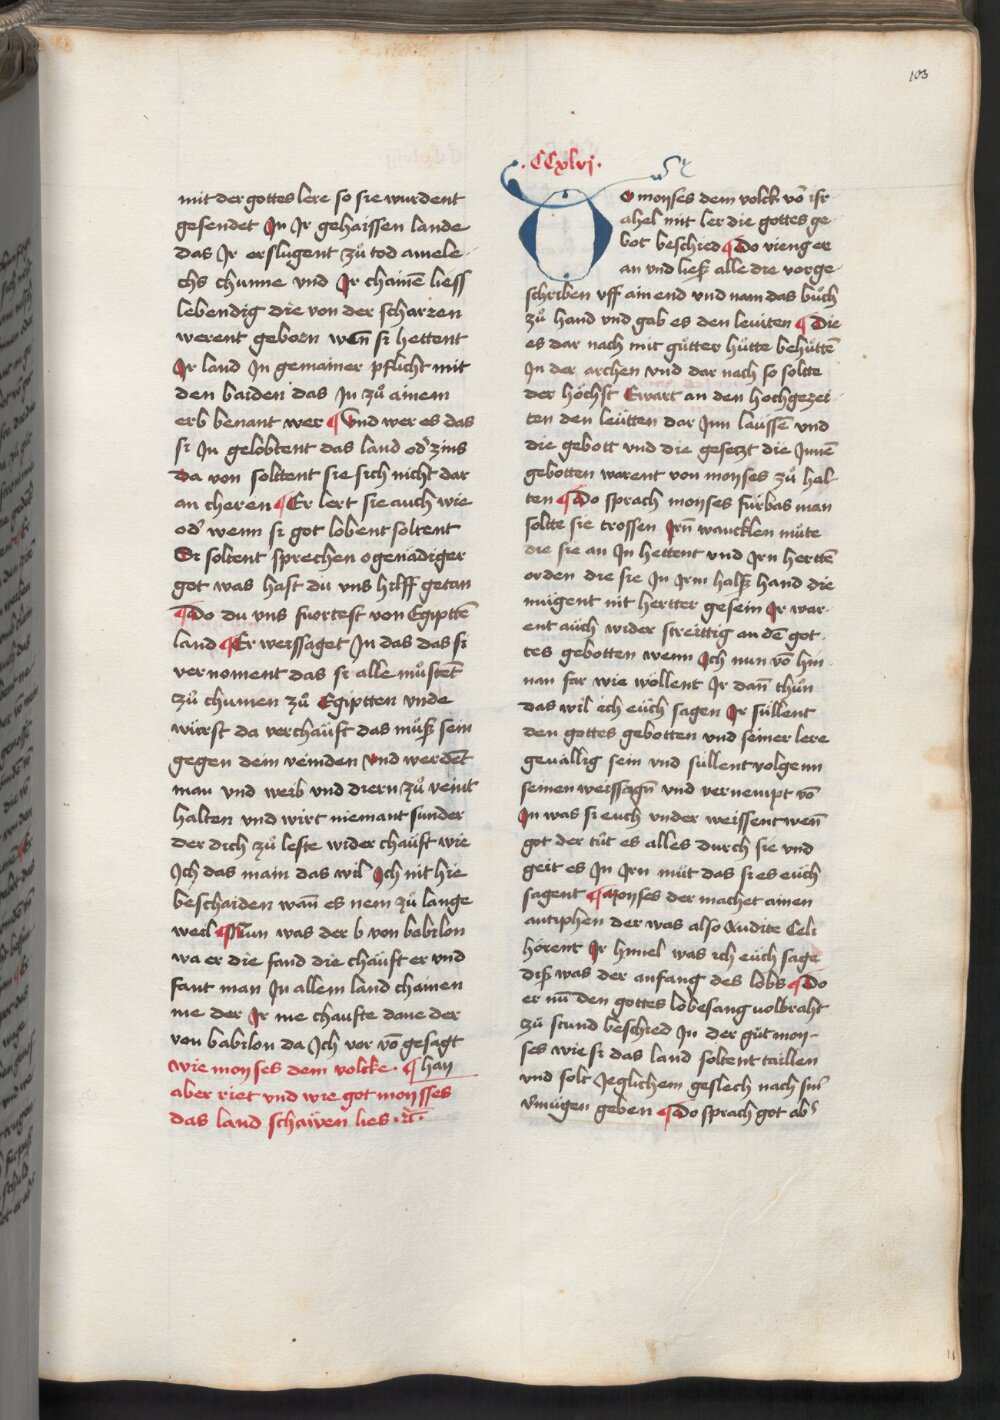 103
mit der gottes lere so sie wurdent
gesendet Jn Jr gehaissen lande
das Jr erslugent zuͦ tod amele
chs chunne und Jr chainē liess
lebendig die von der scharzen
werent geborn wen̄ si hettent
Jr land Jn gemainer pflicht mit
den haiden das Jn zuͦ ainem
erb benant wer ¶ Vnd wer es das
si Jn gelobtent das land od' zins
Da von solttent sie sich nicht dar
an cheren ¶ Er lert sie auch wie
od' wenn si got lobent soltent
Si soltent sprechen o genädiger
got was hast du vns hilff getan
¶ Do du vns fuortest von Egipttē
land ¶ Er weissaget Jn das das si
vernoment das si alle muͦstent
zuͦ chumen zuͦ Egiptten vnde
würst da verchäuft das muͦß sein
gegen dein veinden vnd werdēt
man vnd weib vnd diern zuͦ veint
halten vnd wirt niemant sunder
der dich zuͦ leste wider chäuft wie
Jch das main das wil Jch nit hie
beschaiden wan̄ es nem zuͦ lange
weil ¶ Nun was der b von babilon
wa er die fand die chäuft er vnd
fant man Jn allem land chainen
me der Jr me chaufte dane der
von babilon da Jch vor vō gesagt
wie moyses dem volcke. ¶ han
aber riet vnd wie got moysses
das land schäwen lies .
.CCxlvj.
DO moyses dem volck vō isr
ahel mit ler die gottes ge
bot beschied ¶ Do vieng er
an vnd ließ alle die vorge
schriben vff ain end vnd nam das buͦch
zuͦ hand vnd gab es den leuiten ¶ Die
es dar nach mit guͦtter huͦtte behuͦttē
Jn der archen vnd dar nach so soltte
der höchst Ewart an den hochgezei
ten den leütten dar Jnn laussē vnd
die gebott vnd die gesetzt die Jnnē
gebotten warent von moyses zuͦ hal
ten ¶ Do sprach moyses fürbas man
soltte sie trossen Jrn̄ wancklen müte
die sie an Jn hettent vnd Jrn hertte
orden die sie Jn Jrm halß hand die
mügent nit hertter gesein Jr war
ent auch wider streittig an dē got
tes gebotten wenn Jch nun vō hin
nan far wie wöllent Jr dan̄ thuͦn
das wil ech euch sagen Jr süllent
den gottes gebotten vnd seiner lere
geuällig sein vnd süllent volgenn
seinen weissagn̄ vnd vernempt vō
Jn was si euch vnder weissent wen̄
got der tuͦt es alles durch sie vnd
geit es Jn Jrn muͦt das si es euch
sagent ¶ Moyses der machet ainen
antiphen der was also Audite Celi
hörent Jr himel was ich euch sage
diß was der anfang des lobs ¶ Do
er nū den gottes lobesang uolbraht
zuͦ stund beschied Jn der guͦt moy
ses wie si das land soltent taillen
vnd solt Jeglichem geslech nach sim̄
v'mügen geben ¶ Do sprach got ab'